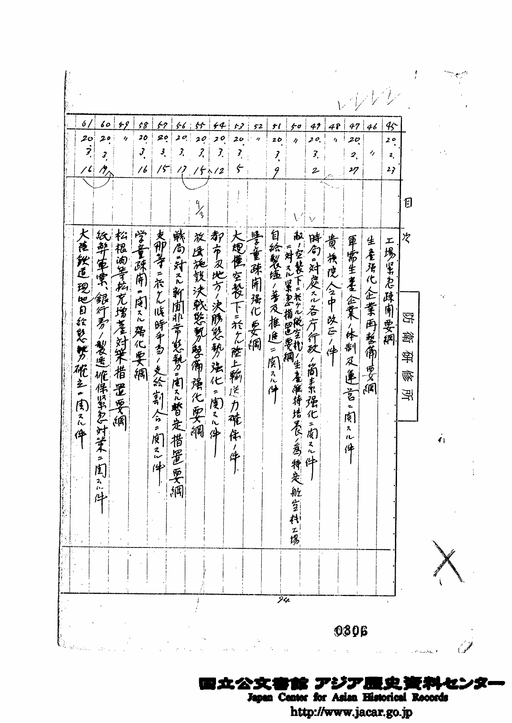 目次
45 20. 2. 23 工場緊急疎開要綱
46 〃 生産強化企業再整備要綱
47 20. 2. 27 軍需生産企業ノ体制及運営ニ関スル件
48 〃 貴族院令中改正ノ件
49 20. 3. 2 時局ニ対処スル各庁行政ノ簡素強化ニ関スル件
50 〃 敵ノ空襲下ニ於ケル航空機ノ生産維持培養ノ為特定航空機工場ニ対スル緊急措置要綱
51 20. 3. 9 自給製塩ノ普及推進ニ関スル件
52 〃 学童疎開強化要綱
53 20. 3. 5 大規模空襲下ニ於ケル陸上輸送力確保ノ件
54 20. 3. 12 都市及地方ノ決勝態勢強化ニ関スル件
55 20. 3. 15 放送施設決戦態勢整備強化要綱
56 20. 3. 13 戦局ニ対スル新聞非常態勢ニ関スル暫定措置要綱
57 20. 3. 15 支那等ニ於ケル臨時手当ノ支給割合ニ関スル件
58 20. 3. 16 学童疎開ニ関スル強化要綱
59 〃 松根油等拡充増産対策措置要綱
60 20. 3. 19 紙幣軍票、銀行券ノ製造確保緊急対策ニ関スル件
61 20. 3. 16 大陸鉄道現地自給態勢確立ニ関スル件
防衛研修所
94
0306
国立公文書館 アジア歴史資料センター
Japan Center for Asian Historical Records
http://www.jacar.go.jp